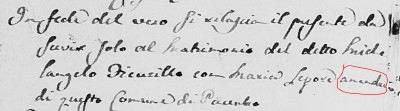 In fede del vero si rilascia il presente da
servire solo al Matrimonio del detto Miche
langelo Ticcurillo con Maria Lepore amendui
di questo Comune di